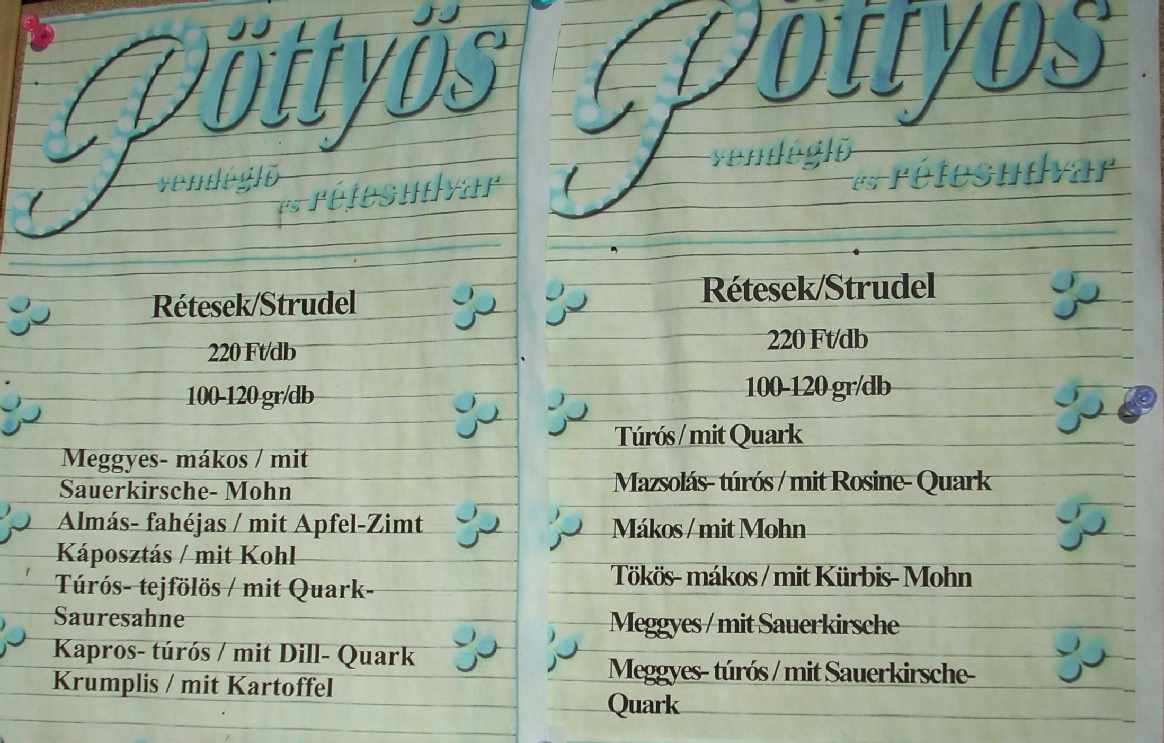 Pöttyös
vendéglő
és rétesudvar
Rétesek/Strudel
220 Ft/db
100-120 gr/db
Meggyes- mákos / mit
Sauerkirsche- Mohn
Almás- fahéjas / mit Apfel-Zimt
Káposztás / mit Kohl
Túrós- tejfölös / mit Quark-
Sauresahne
Kapros- túrós / mit Dill- Quark
Krumplis / mit Kartoffel
Pöttyös
vendéglő
és rétesudvar
Rétesek/Strudel
220 Ft/db
100-120 gr/db
Túrós / mit Quark
Mazsolás- túrós / mit Rosine- Quark
Mákos / mit Mohn
Tökös- mákos / mit Kürbis- Mohn
Meggyes / mit Sauerkirsche
Meggyes- túrós / mit Sauerkirsche-
Quark